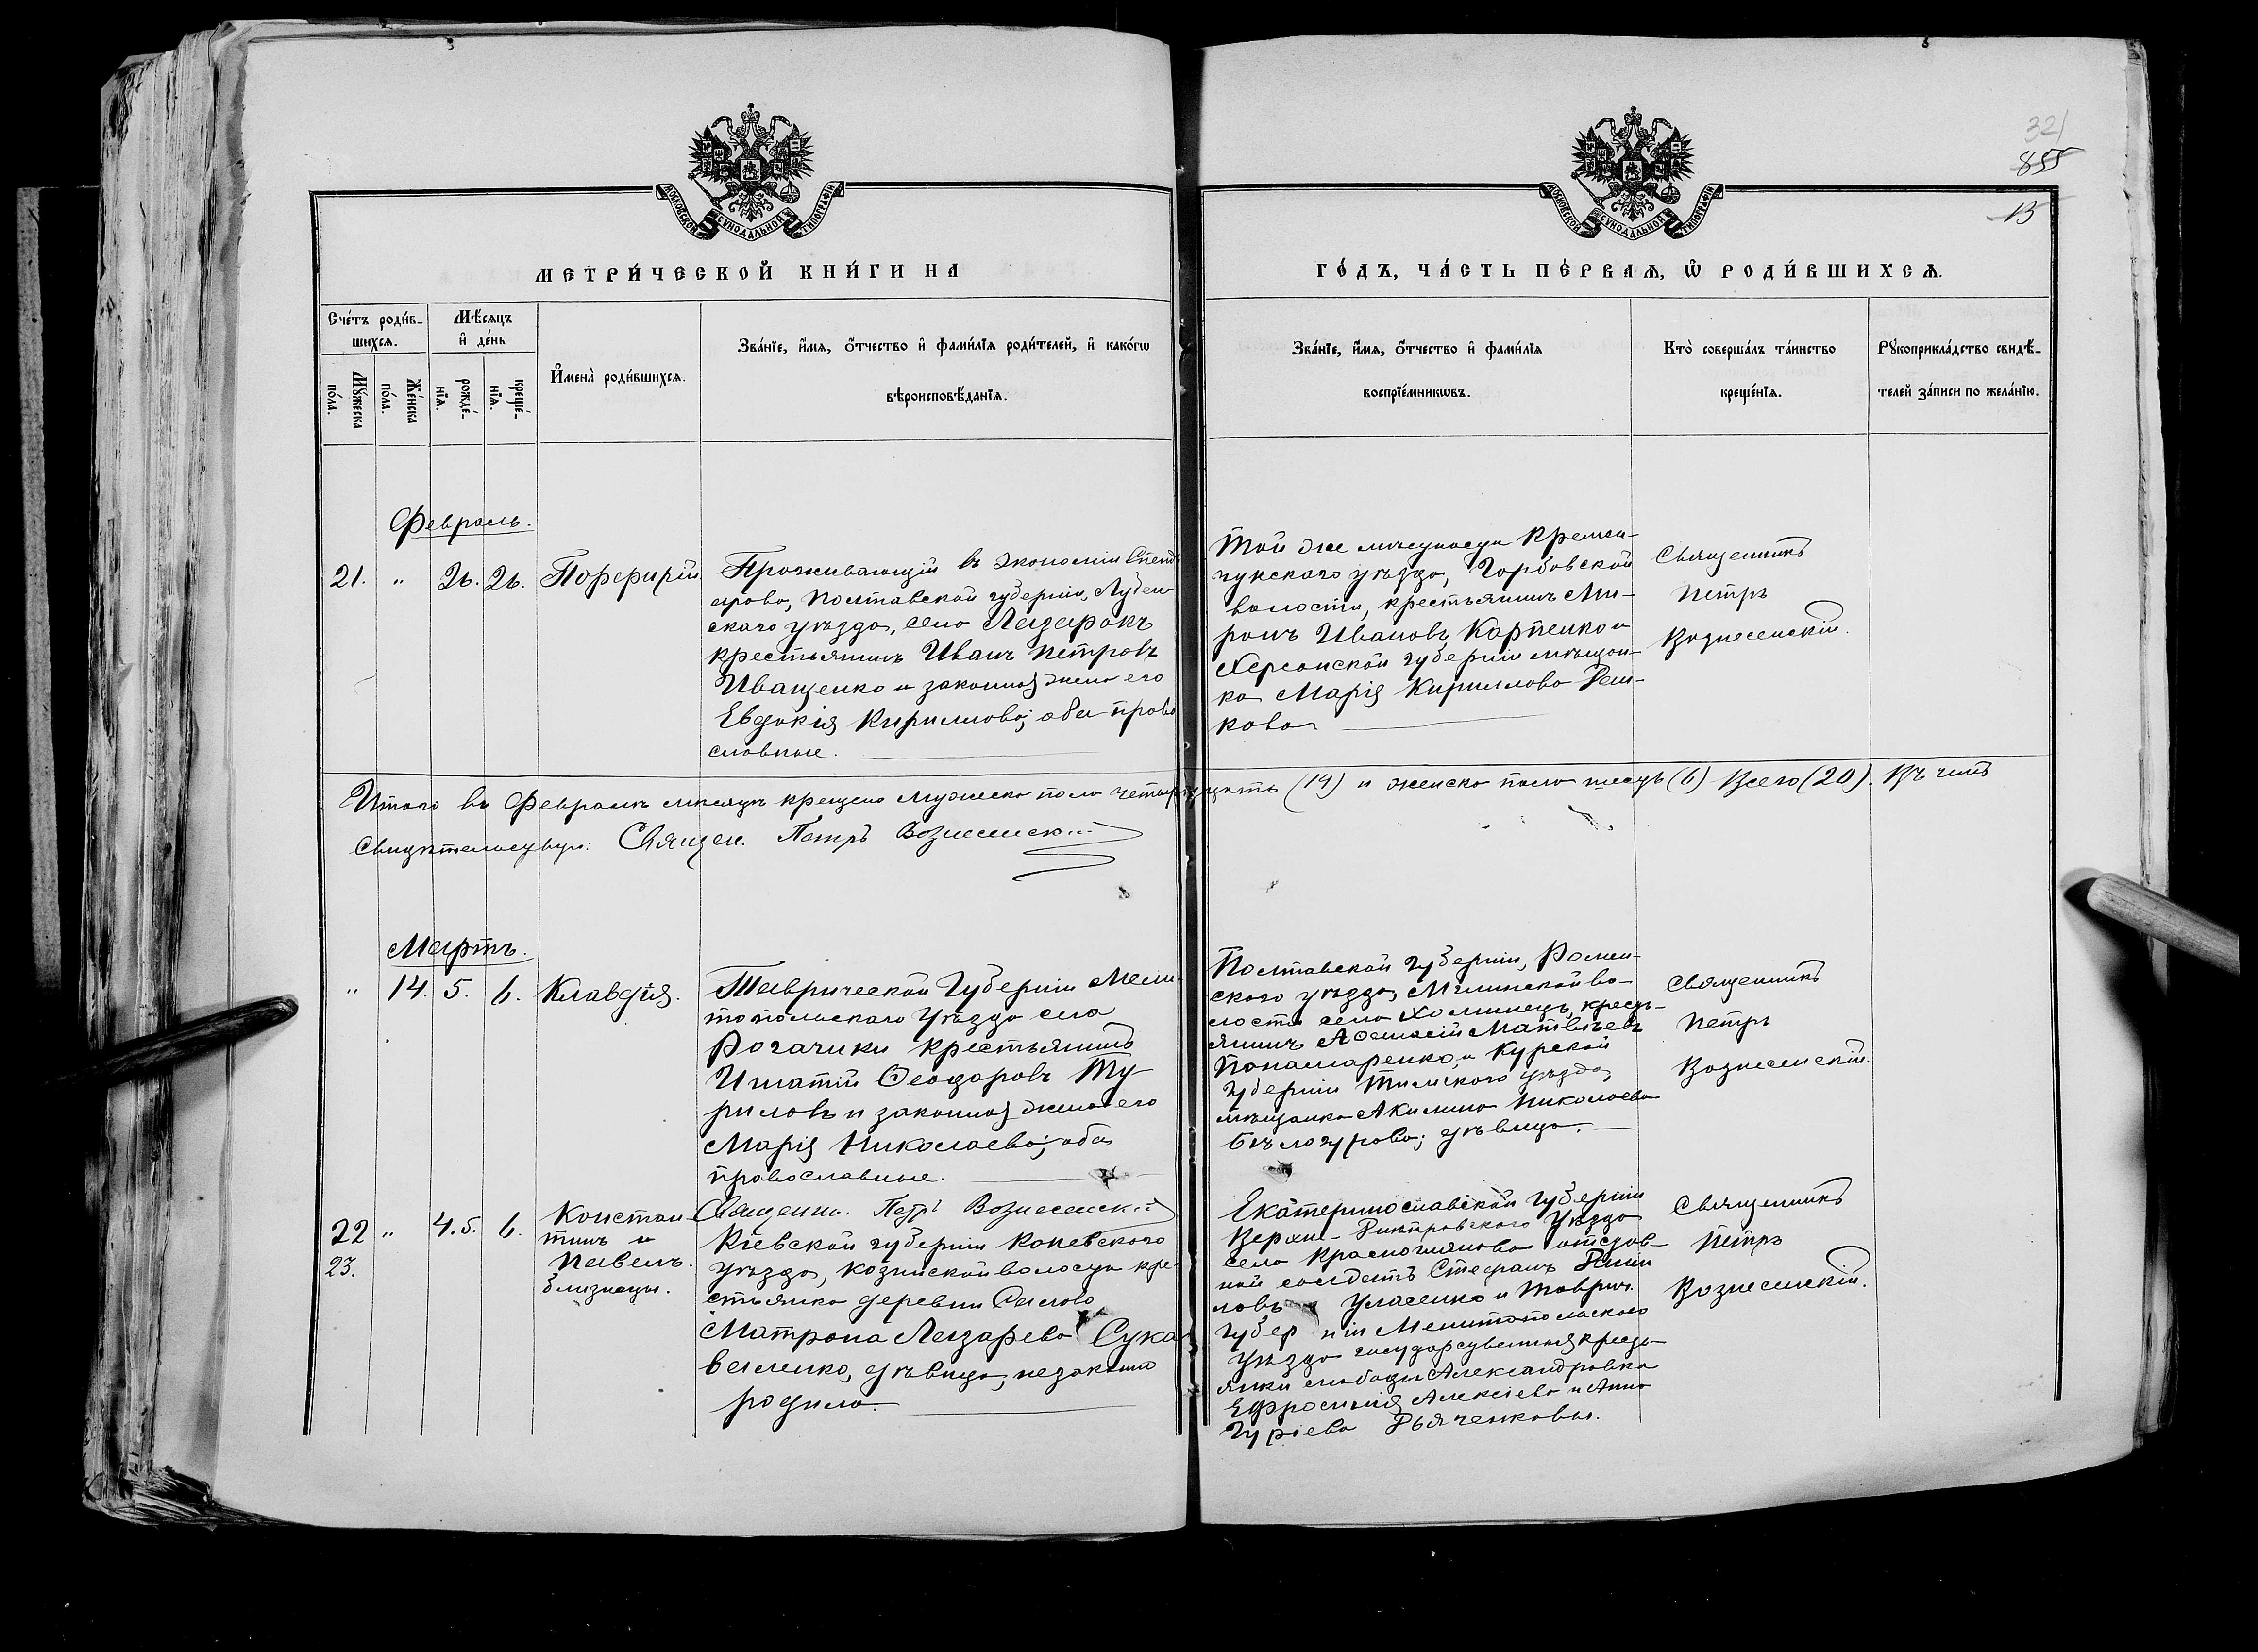 321
855
13
МОСКОВСКОЙ СѴНОДАЛЬНОЙ ТИПОГРАФІИ
МОСКОВСКОЙ СѴНОДАЛЬНОЙ ТИПОГРАФІИ
МЕТРИ́ЧЕСКОЙ КНИ́ГИ НА
ГО́ДЪ, ЧА́СТЬ ПЕ́РВАѦ, Ѿ РОДИ́ВШИХСѦ.
Сче́тъ роди́в-
шихсѧ.
Мѣ́сѧцъ
и҆ де́нь
Мꙋ́жеска
по́ла.
Же́нска
по́ла.
рожде́-
нїѧ.
креще́-
нїѧ.
И҆мена̀ роди́вшихсѧ.
Зва́нїе, и҆́мѧ, ѻ҆́тчество и҆ фами́лїѧ роди́телей, и҆ како́гѡ
вѣроисповѣ́данїѧ.
Зва́нїе, и҆́мѧ, ѻ҆́тчество и҆ фами́лїѧ
воспрїе́мникѡвъ.
Кто̀ соверша́лъ та́инство
креще́нїѧ.
Рꙋкоприкла́дство свидѣ́-
телей за́писи по жела́нїю.
Февраль.
21. " 26. 26. Порфирій.
Проживающій въ экономіи
Полтавской губерніи, Лубен
скаго уѣзда, села Лазорокъ
крестьянинъ Иванъ Петровъ
Иващенко и законная жена его
Евдокія Кириллова; оба право
славные.
Той же мѣстности Кремен-
чукскаго уѣзда, Горбовской
волости, крестьянинъ Ми-
ронъ Ивановъ Карпенко и
Херсонской губерніи мѣщан-
ка Марія Кириллова
кова.
Священникъ
Петръ
Вознесенскій.
Итого въ Февралѣ мѣсяцѣ крещено мужеска пола четырнадцать (14) и женска пола шесть (6) Всего (20). Въ чемъ
свидѣтельствую: Священ. Петръ Вознесенск...
Мартъ.
" 14. 5. 6. Клавдія.
Таврической Губерніи Мели
топольскаго Уѣзда села
Рогачики крестьянинъ
Игнатій Ѳеодоровъ Ту-
риловъ и законная жена его
Марія Николаева; оба
православные.
Священни. Петръ Вознесенскій
Полтавской губерніи, Ромен-
скаго уѣзда, волости села Хоминецъ, кресть-
янинъ Аѳанасій Матвѣевъ
Понамаренко, и Курской
губерніи Тимскаго уѣзда,
мѣщанка Акилина Николаева
Бѣлогурова; дѣвица.
Священникъ
Петръ
Вознесенскій.
22 " 4.5. 6. Констан-
тинъ и
23. Павелъ.
близнецы.
Кіевской губерніи Каневскаго
уѣзда, Козинской волости кре-
стьянка деревни
Матрона Лазарева Сука
веленко, дѣвица, незаконно
родила.
Екатеринославской губерніи
Верхне-Днѣпровскаго Уѣзда
села отстав-
ной солдатъ Стефанъ
ловъ Уласенко и Таврич.
губерніи Мелитопольскаго
уѣзда государственныя кресть-
янки слободы Александровка
Ефросинія Алексіева и Анна
Гуріева Дьяченковы.
Священникъ
Петръ
Вознесенскій.